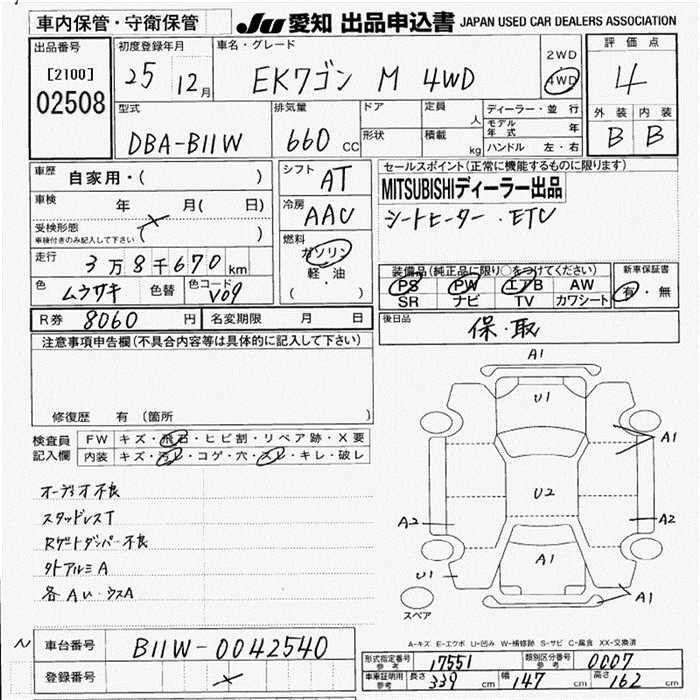 車内保管・守衛保管
JU 愛知 出品申込書 JAPAN USED CAR DEALERS ASSOCIATION
出品番号
[2100]
02508
初度登録年月
25 12月
車名・グレード
EKワゴン M 4WD
2WD
4WD
評価点
4
外装 内装
B B
型式
DBA-B11W
排気量
660 CC
ドア
形状
定員 人
積載 kg
ディーラー・並行
モデル年式 年
ハンドル 左・右
車歴 自家用・( )
車検 年 月( 日)
受検形態
車検付きのみ記入して下さい ( )
走行 3万8千670km
色 ムラサキ 色替 色コード V09
シフト AT
冷房 AAC
燃料
ガソリン
軽・油
( )
セールスポイント(正常に機能するものに限ります)
MITSUBISHIディーラー出品
シートヒーター・ETC
装備品(純正品に限り○をつけてください)
PS PW エアB AW
SR ナビ TV カワシート
新車保証書
有・無
R券 8060 円 名変期限 月 日
後日品 保・取
注意事項申告欄(不具合内容等は具体的に記入して下さい)
修復歴 有 (箇所 )
検査員記入欄
FW キズ・飛石・ヒビ割・リペア跡・X要
内装 キズ・汚レ・コゲ・穴・スレ・キレ・破レ
オーディオ不良
スタッドレスT
Rゲートダンパー不良
外アルミA
各AU・ウスA
A1
U1
A1
U2
A2
A2
A1
U1
A1
スペア
A-キズ E-エクボ U-凹み W-補修跡 S-サビ C-腐食 XX-交換済
N
車台番号 B11W-0042540
登録番号
形式指定番号 参考 17551 類別区分番号 参考 0007
車庫証明用 参考 長さ 339 cm 幅 147 cm 高さ 162 cm